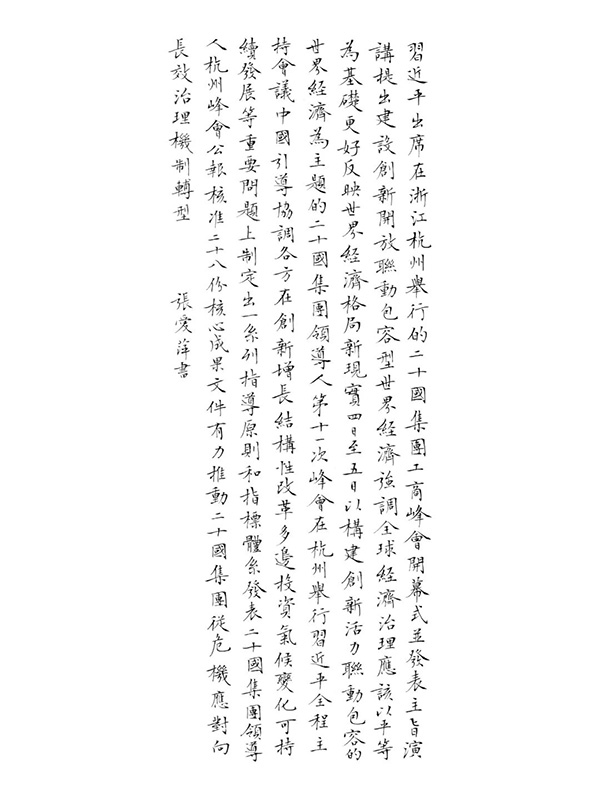 習近平出席在浙江杭州舉行的二十國集團工商峰會開幕式並發表主旨演
講提出建設創新開放聯動包容型世界經濟強調全球經濟治理應該以平等
為基礎更好反映世界經濟格局新現實四日至五日以構建創新活力聯動包容的
世界經濟為主題的二十國集團領導人第十一次峰會在杭州舉行習近平全程主
持會議中國引導協調各方在創新增長結構性改革多邊投資氣候變化可持
續發展等重要問題上制定出一系列指導原則和指標體系發表二十國集團領導
人杭州峰會公報核准二十八份核心成果文件有力推動二十國集團從危機應對向
長效治理機制轉型
張愛萍書